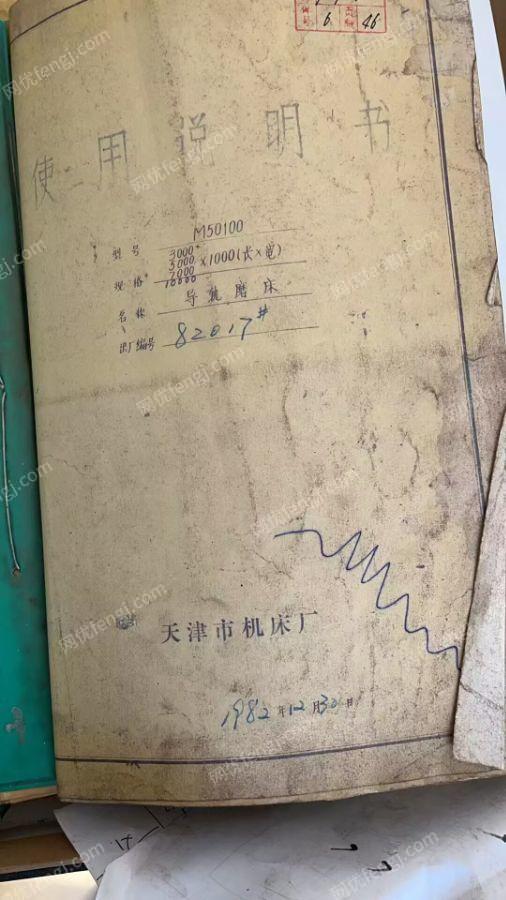 6 46
使用说明书
型号 M50100
3000
5000
规格 7000 ×1000(长×宽)
10000
名称 导轨磨床
出厂编号 82017#
天津市机床厂
1982年12月30日
网优fengj.com